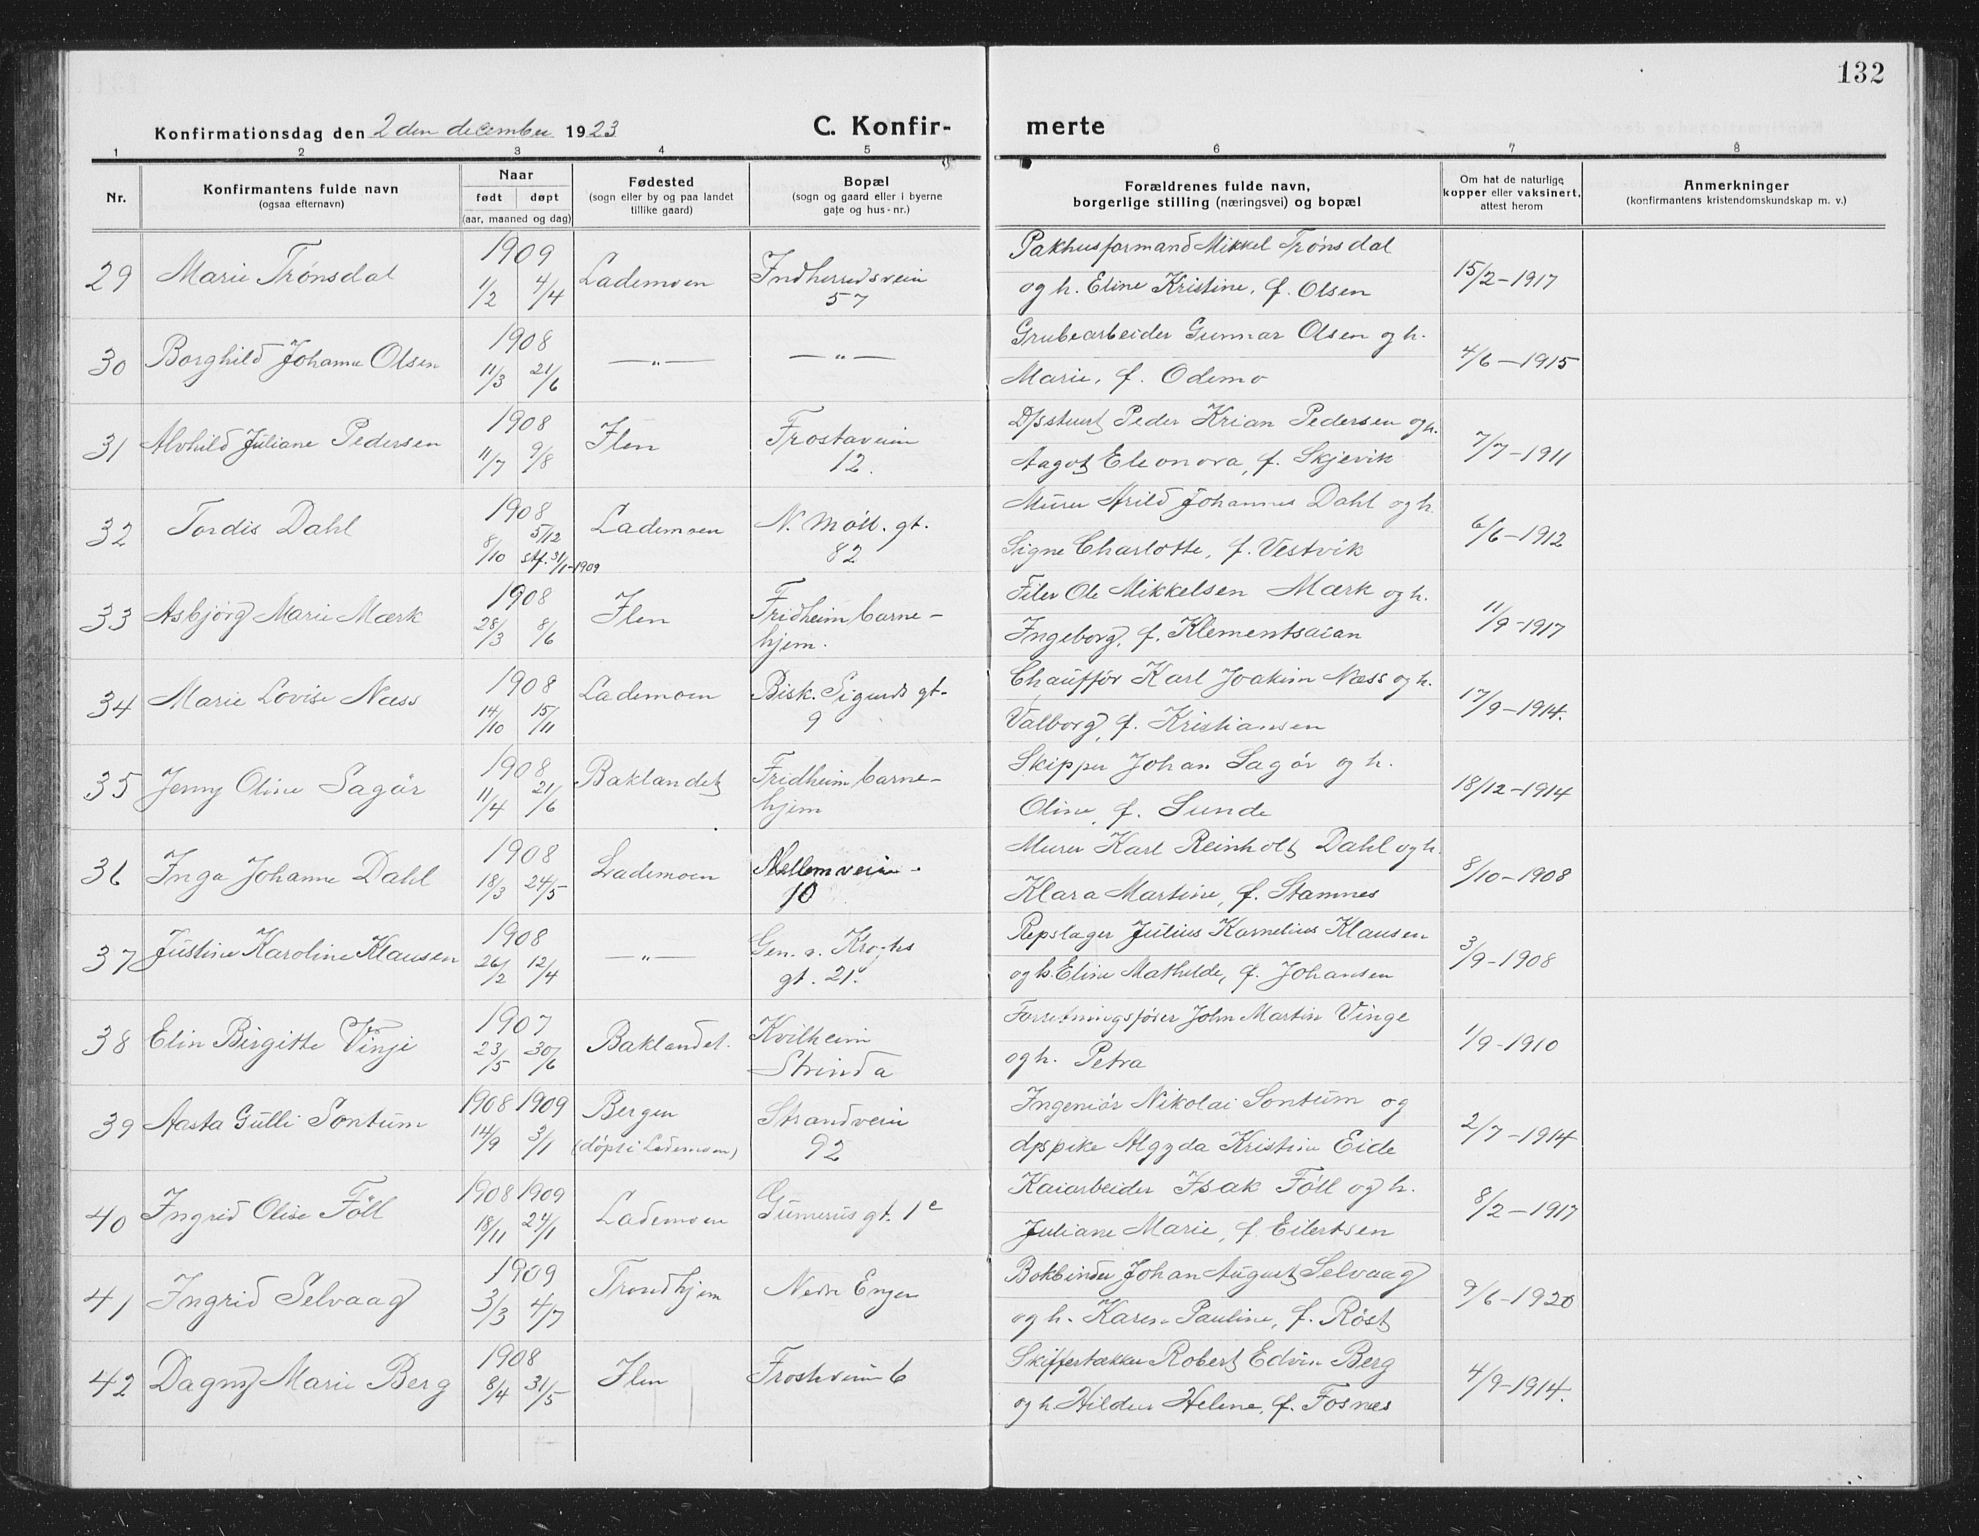 132
Konfirmationsdag den 2 den december 1923
C. Konfir-
merte
1 2 3 4 5 6 7 8
Nr.
Konfirmantens fulde navn
(ogsaa efternavn)
Naar
født døpt
(aar, maaned og dag)
Fødested
(sogn eller by og paa landet
tillike gaard)
Bopæl
(sogn og gaard eller i byerne
gate og hus-nr.)
Forældrenes fulde navn,
borgerlige stilling (næringsvei) og bopæl
Om hat de naturlige
kopper eller vaksinert,
attest herom
Anmerkninger
(konfirmantens kristendomskundskap m. v.)
29 Marie Trønsdal 1909 1/2 4/4 Lademoen Indherredsveien 57
Pakhusformand Mikkel Trønsdal
og h. Eline Kristine, f. Olsen
15/2-1917
30 Borghild Johanne Olsen 1908 11/3 21/6 —„— —„—
Grubearbeider Gunnar Olsen og h.
Marie, f. Odemo
4/6-1915
31 Alvhild Juliane Pedersen 1908 11/7 9/8 Ilen Frostaveien 12.
Dpsstuert Peder Krian Pedersen og h.
Aagot Eleonora, f. Skjevik
7/7-1911
32 Tordis Dahl 1908 8/10 5/12 stf. 31/1-1909 Lademoen N. Møll. gt. 82
Murer Arild Johannes Dahl og h.
Signe Charlotte, f. Vestvik
6/6-1912
33 Asbjørg Marie Mærk 1908 28/3 8/6 Ilen Fridheim barne-
hjem.
Filer Ole Mikkelsen Mærk og h.
Ingeborg, f. Klementsaian
11/9-1917
34 Marie Lovise Næss 1908 14/10 15/11 Lademoen Bisk. Sigurds gt. 9
Chauffør Karl Joakim Næss og h.
Valborg, f. Kristiansen
17/9-1914.
35 Jenny Oline Sagør 1908 11/4 21/6 Baklandet Fridheim barne-
hjem
Skipper Johan Sagør og h.
Oline, f. Sunde
18/12-1914
36 Inga Johanne Dahl 1908 18/3 24/5 Lademoen Mellemveien. 10
Murer Karl Reinholt Dahl og h.
Klara Martine, f. Stamnes
8/10-1908
37 Justine Karoline Klausen 1908 26/2 12/4 —„— Gen. v. Kroghs
gt. 21.
Repslager Julius Kornelius Klausen
og h. Eline Mathilde, f. Johansen
3/9-1908
38 Elin Birgitte Vinje 1907 23/5 30/6 Baklandet. Kvilheim
Strinda
Forretningsfører John Martin Vinge
og h. Petra
1/9-1910
39 Aasta Gulli Sontum 1908 1909 14/9 3/1 Bergen
(døpt i Lademoen) Strandveien 92
Ingeniør Nikolai Sontum og
dpspike Algyda Kristine Eide
2/7-1914
40 Ingrid Olise Føll 1908 1909 18/11 24/1 Lademoen Gunnerus gt. 1c
Kaiarbeider Isak Føll og h.
Juliane Marie, f. Eilertsen
8/2-1917
41 Ingrid Selvaag 1909 3/3 4/7 Trondhjem Nedre Enger
Bokbinder Johan August Selvaag
og h. Karen Pauline, f. Røst
9/6-1920
42 Dagny Marie Berg 1908 8/4 31/5 Ilen Frostveien 6
Skiffertækker Robert Edvin Berg
og h. Hildur Helene, f. Fosnes
4/9-1914.